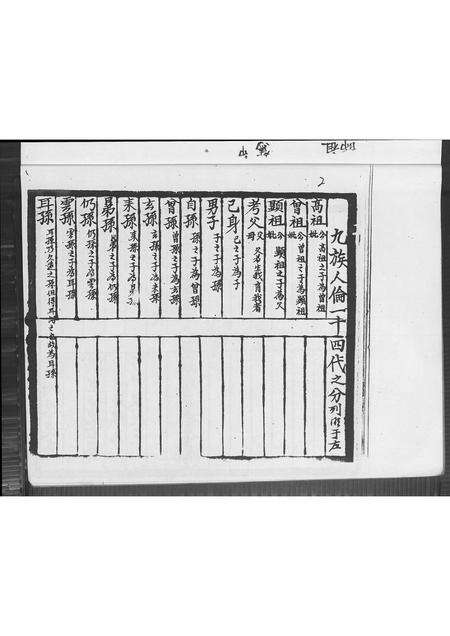 2
九族人倫一十四代之分列明于左
高祖 公妣 高祖之子為曾祖
曾祖 公妣 曾祖之子為顯祖
顯祖 公妣 顯祖之子為父
考父 父母 父母生我育我者
己身 己之子為子
男子 子之子為孫
自孫 孫之子為曾孫
曾孫 曾孫之子為玄孫
玄孫 玄孫之子為來孫
來孫 來孫之子為
晜孫 晜孫之子為仍孫
仍孫 仍孫之子為雲孫
雲孫 雲孫之子為耳孫
耳孫 耳孫乃久遠之孫但得耳聞之也故為耳孫